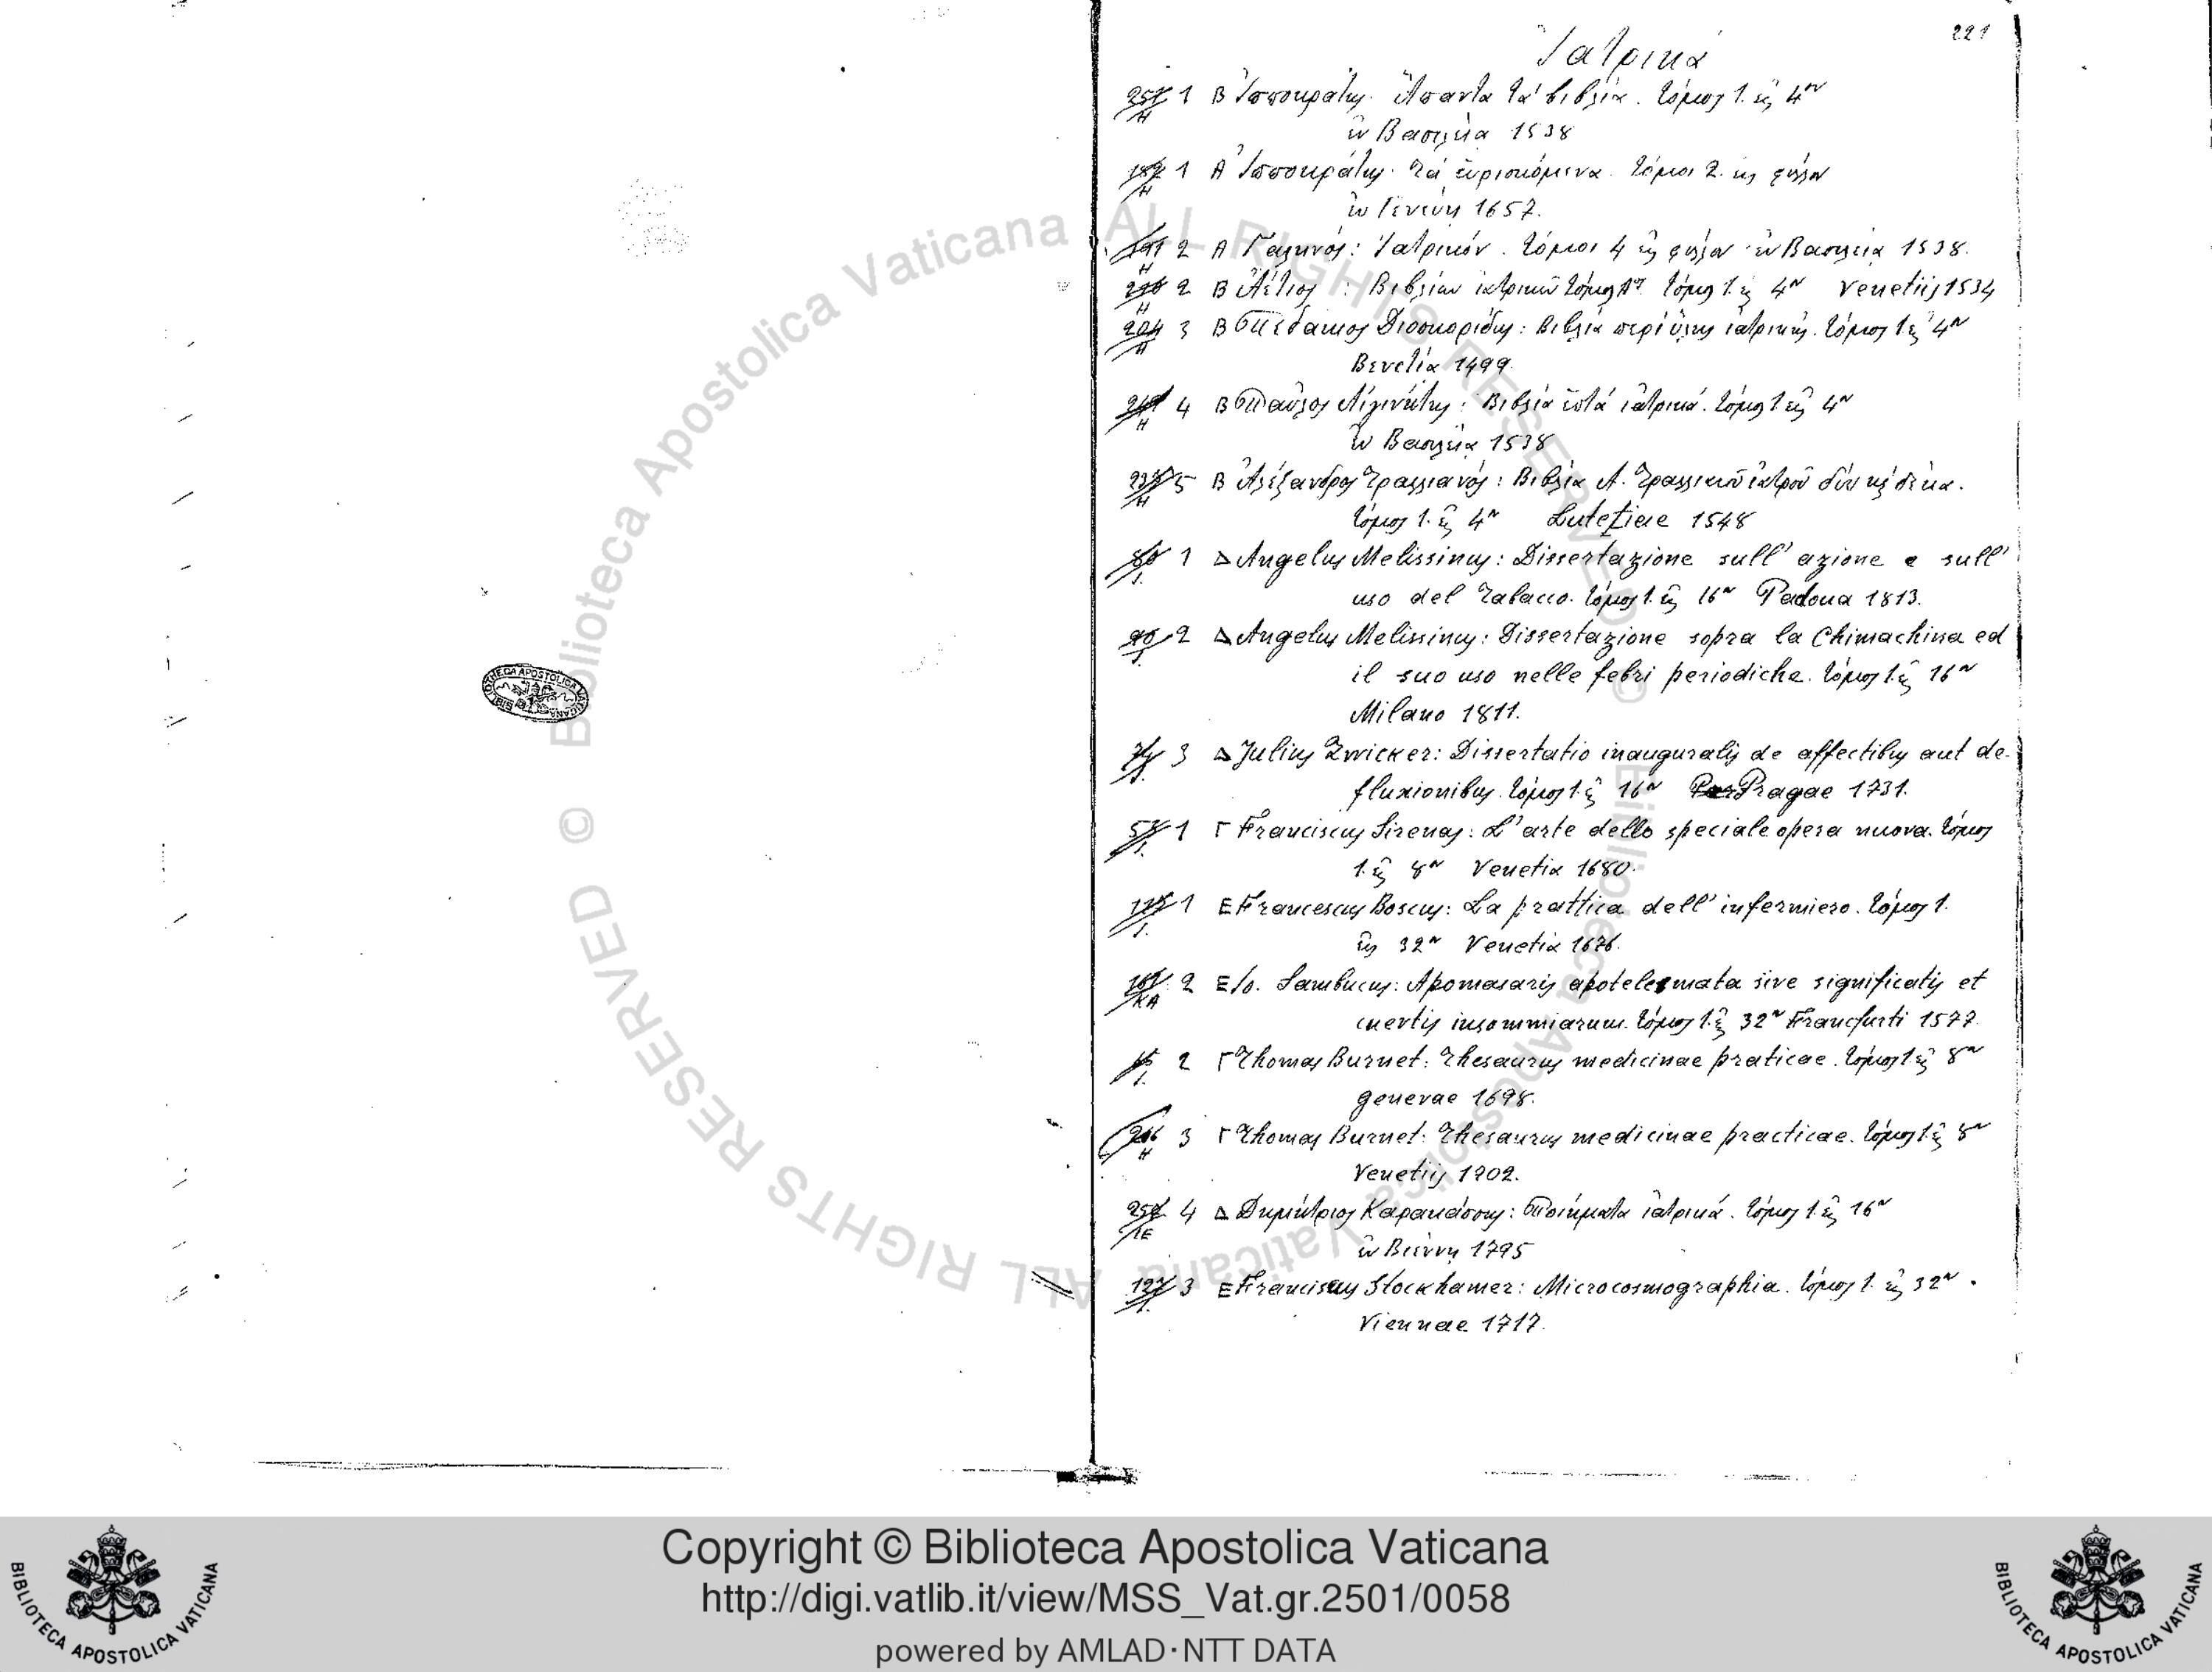 221
Ἰατρικά
251/Η 1 Β Ἱπποκράτης· Ἅπαντα τὰ βιβλία. τόμος 1. εἰς 4ον
ἐν Βασιλείᾳ 1538
1 Α Ἱπποκράτης· τὰ εὑρισκόμενα. τόμοι 2. εἰς φύλλον
ἐν Γενεύῃ 1657.
2 Α Γαληνός: Ἰατρικόν. τόμοι 4 εἰς φύλλον ἐν Βασιλείᾳ 1538.
2 Β Ἀέτιος : Βιβλίων ἰατρικῶν τόμος Αος τόμος 1. εἰς 4ον Venetiis 1534
204/Η 3 Β Πεδάκιος Διοσκορίδης: Βιβλία περὶ ὕλης ἰατρικῆς. τόμος 1 εἰς 4ον
Βενετίᾳ 1499.
4 Β Παῦλος Αἰγινήτης: Βιβλία ἑπτά ἰατρικά. τόμος 1. εἰς 4ον
ἐν Βασιλείᾳ 1538
5 Β Ἀλέξανδρος Τραλλιανός: Βιβλία Α. Τραλλιανοῦ ἰατροῦ δύο καὶ δέκα.
τόμος 1. εἰς 4ον Lutetiae 1548
80/Ι. 1 Δ Angelus Melissinus: Dissertazione sull' azione e sull'
uso del Tabacco. τόμος 1. εἰς 16ον Padoua 1813.
2 Δ Angelus Melissinus: Dissertazione sopra la Chimachina ed
il suo uso nelle febri periodiche. τόμος 1. εἰς 16ον
Milano 1811.
3 Δ Julius Zwicker: Dissertatio inauguralis de affectibus aut de-
fluxionibus. τόμος 1. εἰς 16ον Pragae 1731.
1 Γ Franciscus Sirenas: L'arte dello speciale opera nuova. τόμος
1. εἰς 8ον Venetia 1680.
1 Ε Francescus Boscus: La prattica dell'infermiero. τόμος 1.
εἰς 32ον Venetia 1676.
2 Ε Io. Sambucus: Apomasaris apotelesmata sive significatis et
insommiarum. τόμος 1. εἰς 32ον Francfurti 1577.
2 Γ Thomas Burnet: Thesaurus medicinae praticae. τόμος 1 εἰς 8ον
genevae 1698.
216/Η 3 Γ Thomas Burnet: Thesaurus medicinae practicae. τόμος 1. εἰς 8ον
Venetiis 1702.
4 Δ Δημήτριος Καρακάσσης: Ποιήματα ἰατρικά. τόμος 1. εἰς 16ον
ἐν Βιέννῃ 1795
127/Ι. 3 Ε Franciscus Stockhamer: Microcosmographia. τόμος 1. εἰς 32ον.
Viennae 1717.
BIBLIOTHECA APOSTOLICA VATICANA
© Biblioteca Apostolica Vaticana ALL RIGHTS RESERVED
© Biblioteca Apostolica Vaticana ALL RIGHTS RESERVED
Copyright © Biblioteca Apostolica Vaticana
http://digi.vatlib.it/view/MSS_Vat.gr.2501/0058
powered by AMLAD·NTT DATA
BIBLIOTECA APOSTOLICA VATICANA
BIBLIOTECA APOSTOLICA VATICANA